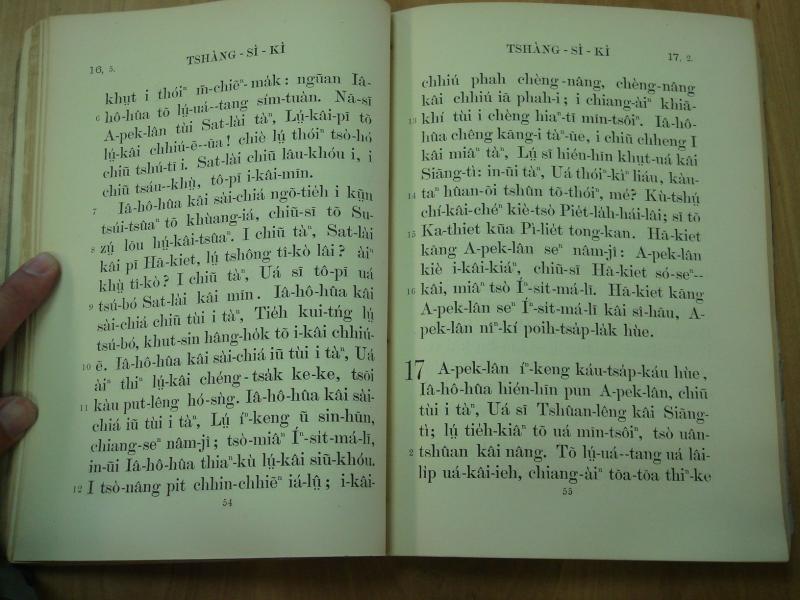 16, 5.
TSHÀNG - SÌ - KÌ
khṳt i thóiⁿ m̄-chiēⁿ-mák: ngūan Iâ-
6 hô-hûa tõ lṳ́-uá--tang sím-tuàn. Nã-sĩ
A-pek-lân tùi Sat-lài tàⁿ, Lṳ́-kâi-pī tõ
lṳ́-kâi chhiú-ẽ--ũa! chiè lṳ́ thóiⁿ tsò-hó
chiũ tshú-tī i. Sat-lài chiũ lâu-khóu i, i
chiũ tsáu--khṳ̀, tô-pī i-kâi-mīn.
7 Iâ-hô-hûa kâi sài-chiá ngõ-tie̍h i kṳ̃n
tsúi-tsûaⁿ tõ khùang-iá, chiũ-sĩ tõ Su-
8 zṳ́ lõu hṳ́-kâi-tsûaⁿ. I chiũ tàⁿ, Sat-lài
kâi pī Hā-kiet, lṳ́ tshông tī-kò lâi? àiⁿ
khṳ̀ tī-kò? I chiũ tàⁿ, Uá sĩ tô-pī uá
9 tsú-bó Sat-lài kâi mīn. Iâ-hô-hûa kâi
sài-chiá chiũ tùi i tàⁿ, Tie̍h kui-tńg lṳ́
tsú-bó, khut-sin hâng-ho̍k tõ i-kâi chhiú-
10 ẽ. Iâ-hô-hûa kâi sài-chiá iũ tùi i tàⁿ, Uá
àiⁿ thiⁿ lṳ́-kâi chéng-tsa̍k ke-ke, tsõi
11 kàu put-lêng hó-sǹg. Iâ-hô-hûa kâi sài-
chiá iũ tùi i tàⁿ, Lṳ́ íⁿ-keng ũ sin-hūn,
chiang-seⁿ nâm-jî; tsò-miâⁿ Íⁿ-sit-má-lī,
in-ūi Iâ-hô-hûa thiaⁿ-kù lṳ́-kâi siũ-khóu.
12 I tsò-nâng pit chhin-chhiēⁿ iá-lṳ̂; i-kâi-
54
TSHÀNG - SÌ - KÌ
17, 2.
chhiú phah chèng-nâng, chèng-nâng
kâi chhiú iā phah-i; i chiang-àiⁿ khiā-
13 khí tùi i chèng hiaⁿ-tĩ mīn-tsôiⁿ. Iâ-hô-
hûa chêng kāng-i tàⁿ-ūe, i chiũ chheng I
kâi miâⁿ tàⁿ, Lṳ́ sĩ hién-hīn khut-uá kâi
Siāng-tì: in-ūi tàⁿ, Uá thóiⁿ-kìⁿ liáu, kàu-
14 taⁿ hûan-õi tshûn tõ-thóiⁿ, mé? Kù-tshú
chí-kâi-chéⁿ kiè-tsò Pie̍t-la̍h-hái-lâi; sĩ tõ
15 Ka-thiet kūa Pì-lie̍t tong-kan. Hā-kiet
kāng A-pek-lân seⁿ nâm-jî: A-pek-lân
kiè i-kâi-kiáⁿ, chiũ-sĩ Hā-kiet só-seⁿ--
16 kâi, miâⁿ tsò Íⁿ-sit-má-lī. Hā-kiet kāng
A-pek-lân seⁿ Íⁿ-sit-má-lī kâi sî-hāu, A-
pek-lân níⁿ-kí poih-tsa̍p-la̍k hùe.
17 A-pek-lân íⁿ-keng káu-tsa̍p-káu hùe,
Iâ-hô-hûa hién-hīn pun A-pek-lân, chiũ
tùi i tàⁿ, Uá sĩ Tshûan-lêng kâi Siāng-
tì; lṳ́ tie̍h-kiâⁿ tõ uá mīn-tsôiⁿ, tsò uân-
2 tshûan kâi nâng. Tõ lṳ́-uá--tang uá lâi-
li̍p uá-kâi-ieh, chiang-àiⁿ tōa-tōa thiⁿ-ke
55